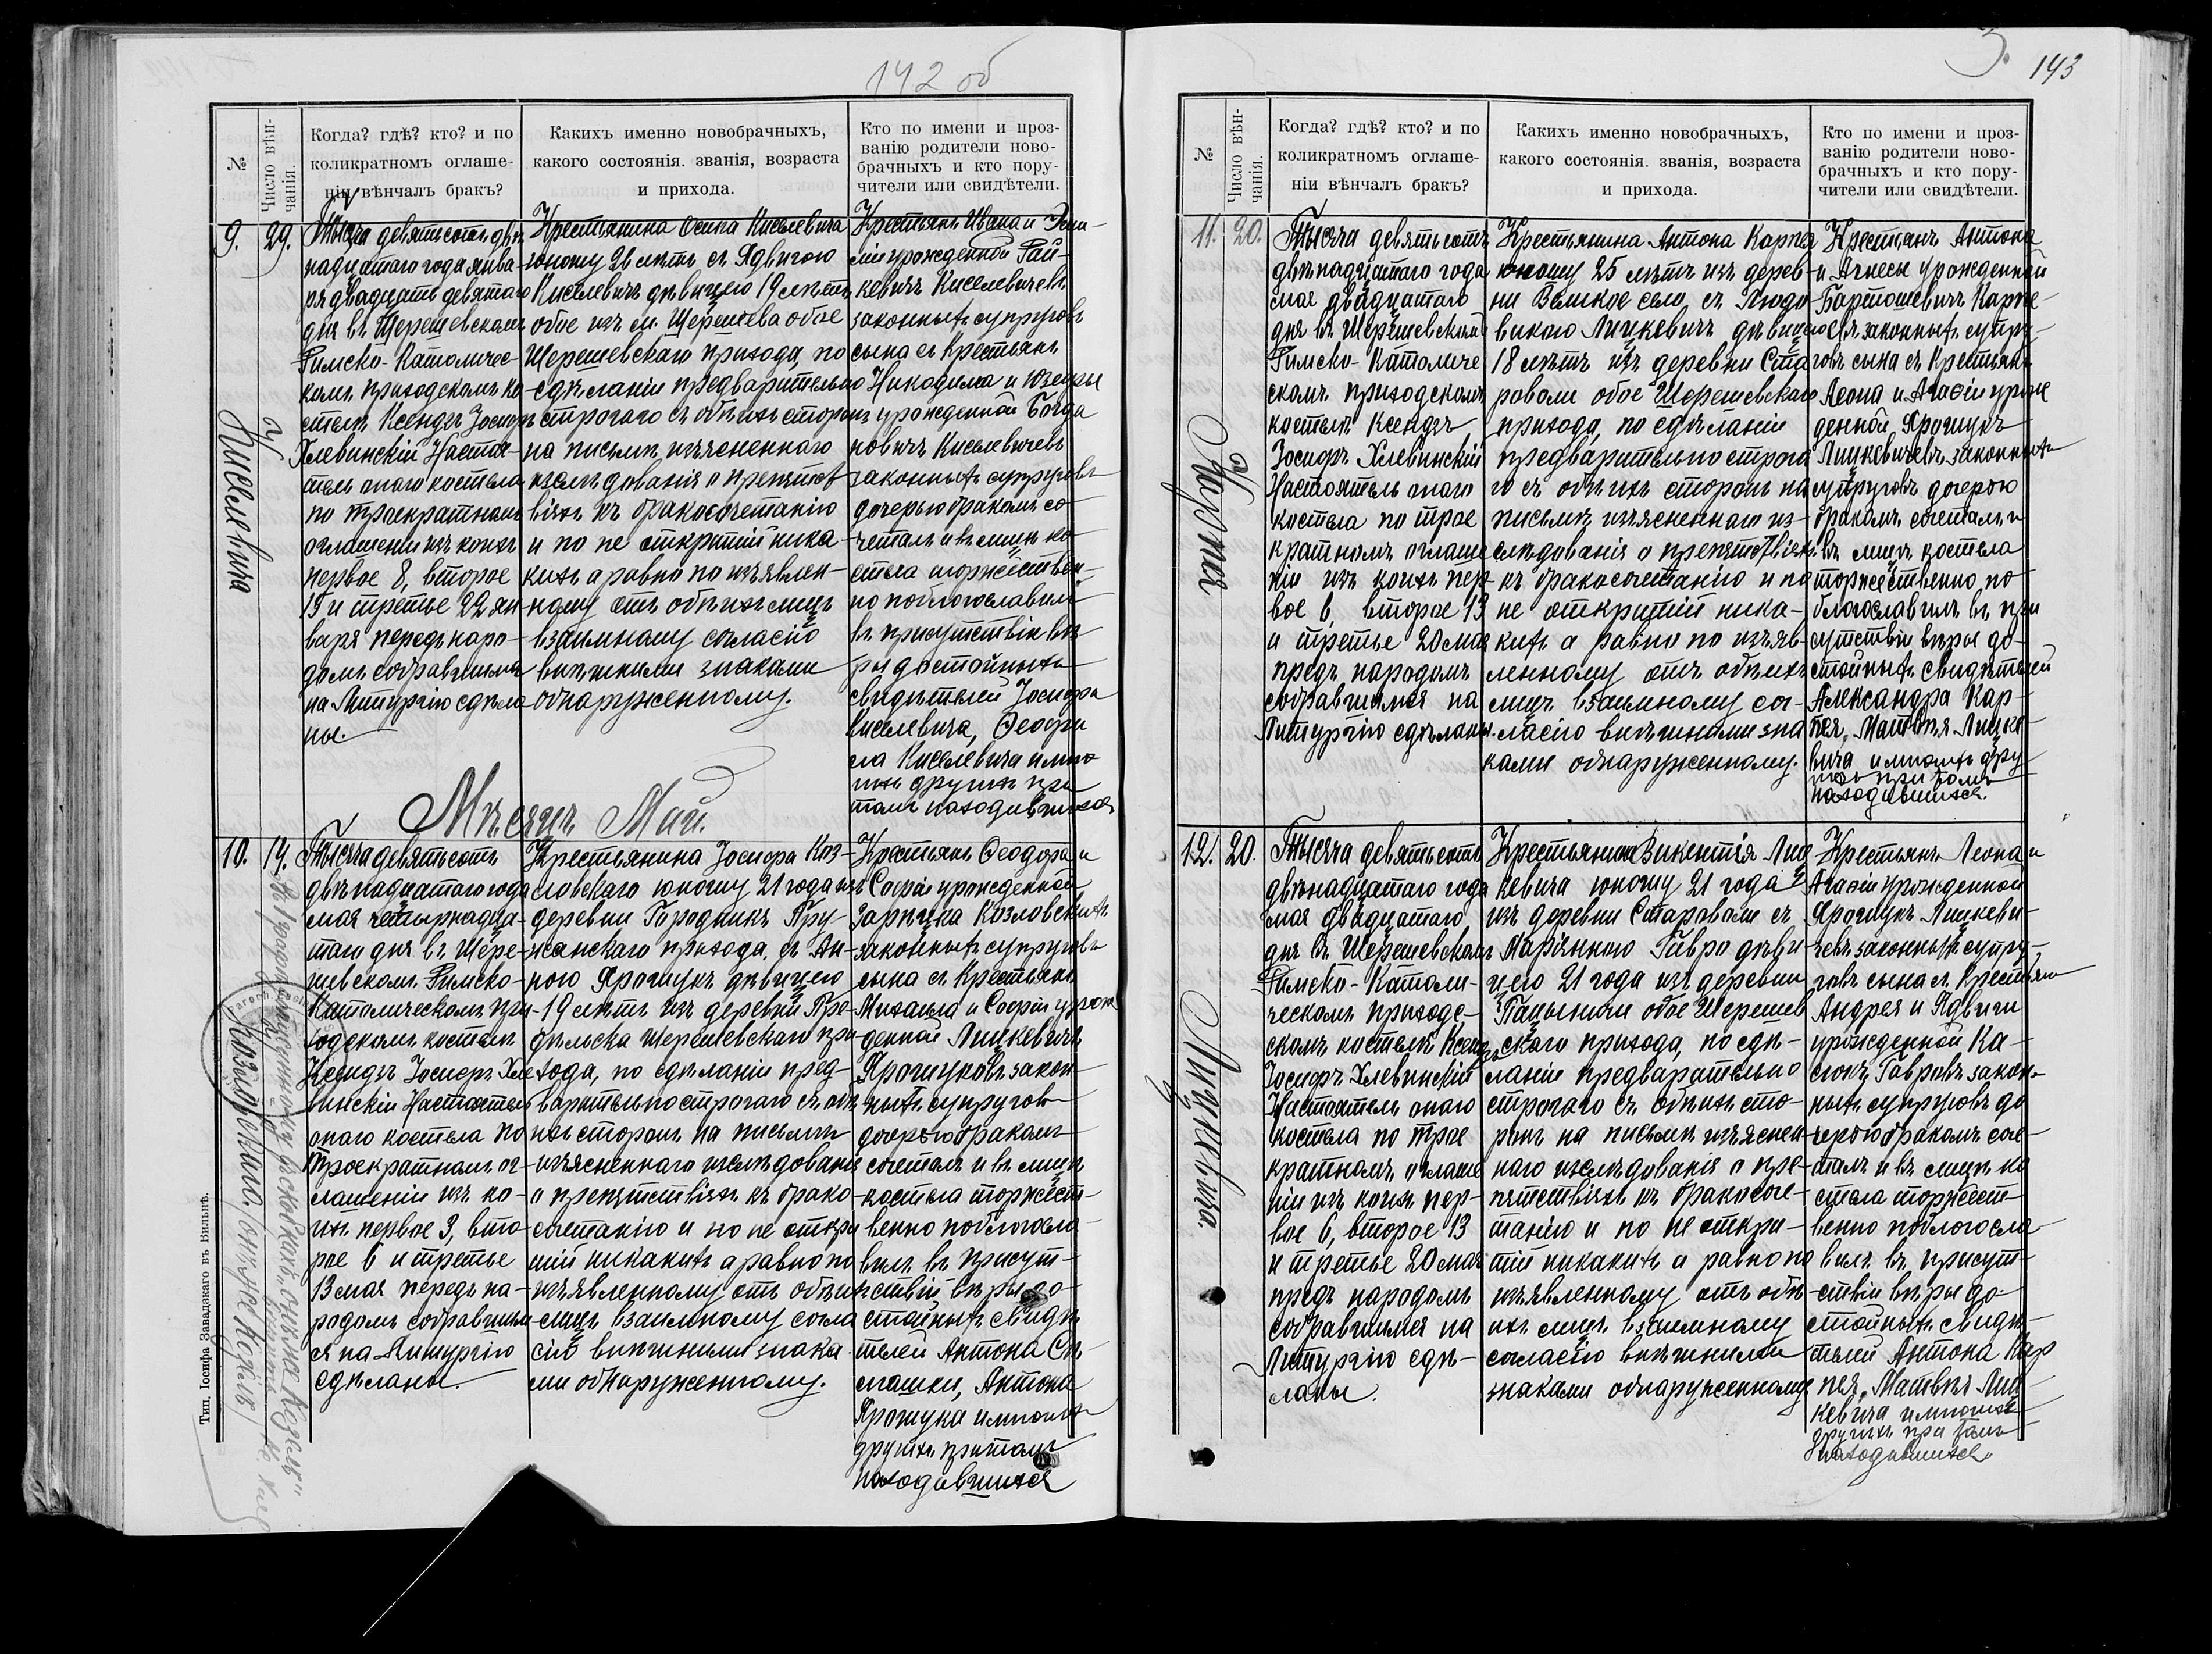 142 об
№
Число вѣн-
чанія.
Когда? гдѣ? кто? и по
коликратномъ оглаше-
ніи вѣнчалъ бракъ?
Какихъ именно новобрачныхъ,
какого состоянія. званія, возраста
и прихода.
Кто по имени и проз-
ванію родители ново-
брачныхъ и кто пору-
чители или свидѣтели.
9.
29.
Киселевича
Тысяча девятьсотъ двѣ-
надцатаго года янва-
ря двадцать девятаго
дня въ Шерешевскомъ
Римско-Католичес-
комъ приходскомъ ко-
стелѣ Ксендзъ Іосифъ
Хлевинскій Настоя-
тель онаго костела
по троекратномъ
оглашеніи изъ коихъ
первое 8, второе
15 и третье 22 ян-
варя передъ наро-
домъ собравшимся
на Литургію сдѣла-
ны.
Крестьянина Осипа Киселевича
юношу 26 лѣтъ съ Ядвигою
Киселевичъ дѣвицею 19 лѣтъ
обое изъ м. Шерешева обое
Шерешевскаго прихода, по
сдѣланіи предварительно
строгаго съ обѣихъ сторонъ
на письмѣ изъясненнаго
изслѣдованія о препятст-
віяхъ къ бракосочетанію
и по не открытіи ника-
кихъ а равно по изъявлен-
ному отъ обѣихъ лицъ
взаимному согласію
внѣшними знаками
обнаруженному.
Крестьянъ Ивана и
урожденной Рай-
кевичъ Киселевичевъ
законныхъ супруговъ
сына съ Крестьянъ
Никодима и Юзефы
урожденной Богда-
новичъ Киселевичевъ
законныхъ супруговъ
дочерью бракомъ со-
четалъ и въ лицѣ ко-
стела торжествен-
но поблагославилъ
въ присутствіи вѣ-
ры достойныхъ
свидѣтелей Іосифа
Киселевича, Ѳеофи-
ла Киселевича и мно-
гихъ другихъ при
томъ находившихся
Мѣсяцъ Май.
10.
14.
Козловскаго
Тысяча девятьсотъ
двѣнадцатаго года
мая четырнадца-
таго дня въ Шере-
шевскомъ Римско-
Католическомъ при-
ходскомъ костелѣ
Ксендзъ Іосифъ Хле-
винскій Настоятель
онаго костела по
троекратномъ ог-
лашеніи изъ ко-
ихъ первое 3, вто-
рое 6 и третье
13 мая передъ на-
родомъ собравшим-
ся на Литургію
сдѣланы.
Крестьянина Іосифа Коз-
ловскаго юношу 21 года изъ
деревни Городникъ Пру-
жанскаго прихода, съ Ан-
ною Ярошукъ дѣвицею
19 лѣтъ изъ деревни
Шерешевскаго при-
хода, по сдѣланіи пред-
варительно строгаго съ обѣ-
ихъ сторонъ на письмѣ
изъясненнаго изслѣдованія
о препятствіяхъ къ брако-
сочетанію и по не откры-
тіи никакихъ а равно по
изъявленному отъ обѣихъ
лицъ взаимному согла-
сію внѣшними знака-
ми обнаруженному.
Крестьянъ Ѳеодора и
Софіи урожденной
Козловскихъ
законныхъ супруговъ
сына съ Крестьянъ
Михаила и Софіи урож-
денной Лицкевичъ
Ярошуковъ закон-
ныхъ супруговъ
дочерью бракомъ
сочеталъ и въ лицѣ
костела торжест-
венно поблагосла-
вилъ въ присут-
ствіи вѣры до-
стойныхъ свидѣ-
телей Антона
Антона
Ярошука и многихъ
другихъ при томъ
находившихся
Тип. Іосифа Завадзкаго въ Вильнѣ.
3.
143
№
Число вѣн-
чанія.
Когда? гдѣ? кто? и по
коликратномъ оглаше-
ніи вѣнчалъ бракъ?
Какихъ именно новобрачныхъ,
какого состоянія. званія, возраста
и прихода.
Кто по имени и проз-
ванію родители ново-
брачныхъ и кто пору-
чители или свидѣтели.
11.
20.
Карпея
Тысяча девятьсотъ
двѣнадцатаго года
мая двадцатаго
дня въ Шерешевскомъ
Римско-Католиче-
скомъ приходскомъ
костелѣ Ксендзъ
Іосифъ Хлевинскій
Настоятель онаго
костела по трое-
кратномъ оглаше-
ніи изъ коихъ пер-
вое 6, второе 13
и третье 20 мая
предъ народомъ
собравшимся на
Литургію сдѣланы.
Крестьянина Антона Карпея
юношу 25 лѣтъ изъ дерев-
ни Великое село, съ Людо-
викою Лицкевичъ дѣвицею
18 лѣтъ изъ деревни Ста-
роволи обое Шерешевскаго
прихода, по сдѣланіи
предварительно строга-
го съ обѣихъ сторонъ на
письмѣ изъясненнаго из-
слѣдованія о препятствіяхъ
къ бракосочетанію и по
не открытіи ника-
кихъ а равно по изъяв-
ленному отъ обѣихъ
лицъ взаимному сог-
ласію внѣшними зна-
ками обнаруженному.
Крестьянъ Антона
и Агнесы урожденной
Бартошевичъ Карпе-
евъ законныхъ супру-
говъ сына съ Крестьянъ
Леона и Агаѳіи урож-
денной Ярошукъ
Лицкевичевъ законныхъ
супруговъ дочерью
бракомъ сочеталъ и
въ лицѣ костела
торжественно по-
благославилъ въ при-
сутствіи вѣры до-
стойныхъ свидѣтелей
Александра Кар-
пея, Матвѣя Лицке-
вича и многихъ дру-
гихъ при томъ
находившихся.
12.
20.
Лицкевича.
Тысяча девятьсотъ
двѣнадцатаго года
мая двадцатаго
дня въ Шерешевскомъ
Римско-Католи-
ческомъ приход-
скомъ костелѣ Ксендзъ
Іосифъ Хлевинскій
Настоятель онаго
костела по трое-
кратномъ оглаше-
ніи изъ коихъ пер-
вое 6, второе 13
и третье 20 мая
предъ народомъ
собравшимся на
Литургію сдѣ-
ланы.
Крестьянина Викентія Лиц-
кевича юношу 21 года
изъ деревни Староволи съ
Маріанною Гавро дѣви-
цею 21 года изъ деревни
обое Шерешев-
скаго прихода, по сдѣ-
ланіи предварительно
строгаго съ обѣихъ сто-
ронъ на письмѣ изъяснен-
наго изслѣдованія о пре-
пятствіяхъ къ бракосоче-
танію и по не откры-
тіи никакихъ а равно по
изъявленному отъ обѣ-
ихъ лицъ взаимному
согласію внѣшними
знаками обнаруженному
Крестьянъ Леона и
Агаѳіи урожденной
Ярошукъ Лицкеви-
чевъ законныхъ супру-
говъ сына съ Крестьянъ
Андрея и Ядвиги
урожденной
Гавровъ закон-
ныхъ супруговъ до-
черью бракомъ соче-
талъ и въ лицѣ ко-
стела торжест-
венно поблагосла-
вилъ въ присут-
ствіи вѣры до-
стойныхъ свидѣ-
телей Антона Кар-
пея, Матвѣя Лиц-
кевича и многихъ
другихъ при томъ
находившихся